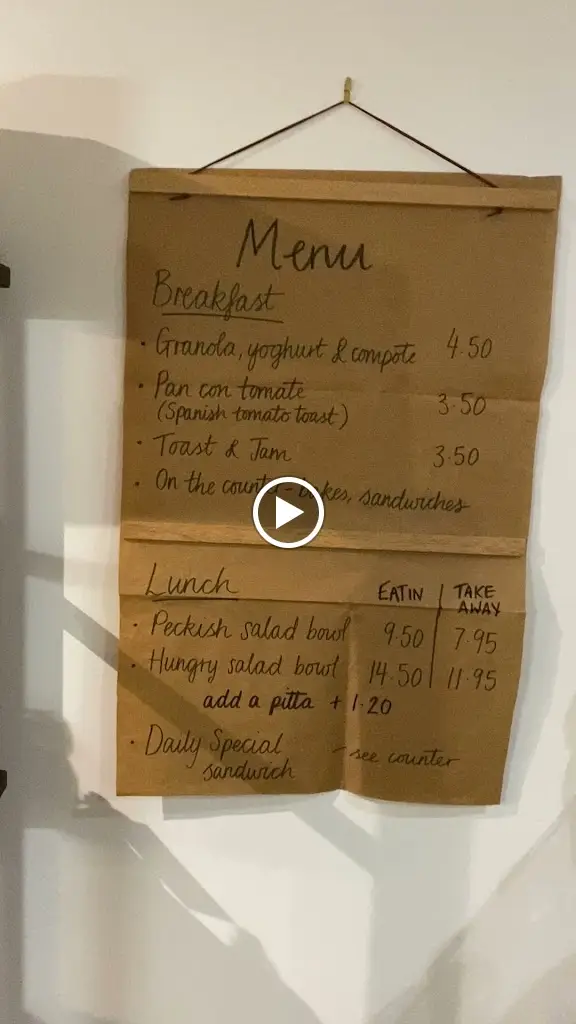 Menu
Breakfast
• Granola, yoghurt & compote 4.50
• Pan con tomate
(Spanish tomato toast) 3.50
• Toast & Jam 3.50
• On the counter - bakes, sandwiches
Lunch EAT IN | TAKE AWAY
• Peckish salad bowl 9.50 | 7.95
• Hungry salad bowl 14.50 | 11.95
add a pitta + 1.20
• Daily Special
sandwich - see counter